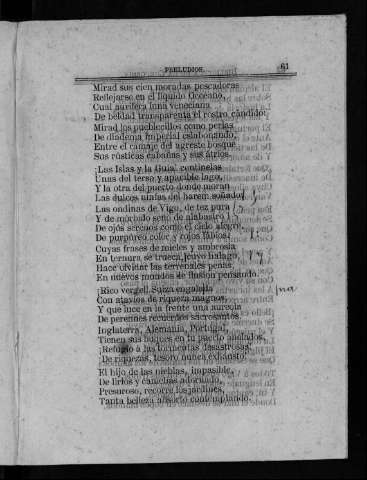 PRELUDIOS. 61
Mirad sus cien moradas pescadoras
Reflejarse en el líquido Occéano,
Cual aurífera luna veneciana
De beldad transparenta el rostro cándido:
Mirad los pueblecillos como perlas
De diadema imperial eslabonando,
Entre el ramaje del agreste bosque
Sus rústicas cabañas y sus átrios.
¡Las Islas y la Guía! centinelas
Unas del terso y apacible lago,
Y la otra del puerto donde moran
Las dulces ninfas del harem soñado!
Las ondinas de Vigo, de tez pura
Y de mórbido seno de alabastro
De ojos serenos como el cielo alegre,
De purpúreo color y rojos lábios!
Cuyas frases de mieles y ambrosía
En ternura se trueca, cuyo halago,
Hace olvidar las terrenales penas,
En nuevos mundos de ilusion pensando.
¡Rico vergel! Suiza engalada
Con atavíos de riqueza magnos,
Y que luce en la frente una aureola
De perennes recuerdos sacrosantos
Inglaterra, Alemania, Portugal,
Tienen sus buques en tu puerto anclados,
¡Refugio á las tormentas desastrosas,
De riquezas, tesoro nunca exhausto!
El hijo de las nieblas, impasible,
De lirios y camelias adornado,
Presuroso, recorre los jardines,
Tanta belleza absorto contemplando.